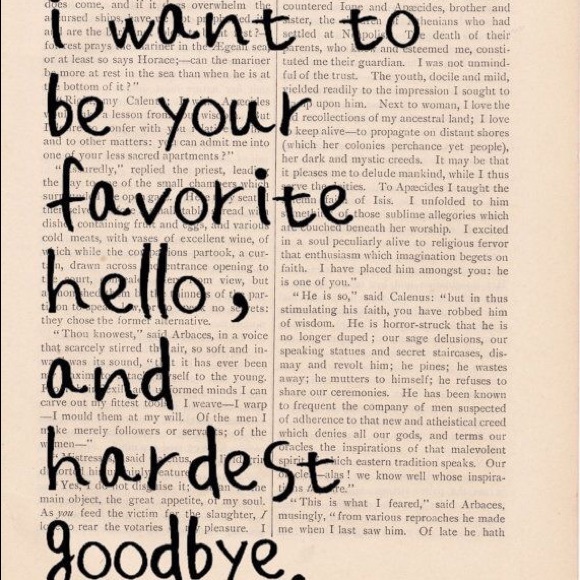 I want to
be your
favorite
hello,
and
hardest
goodbye.
does come, and if it overwhelm the
ships,
are the
forest prays mariner in the Ægean sea
or at least so says Horace;—can the mariner
be more at rest in the sea than when he is at
the bottom of it?"
my Calenus,
a lesson from wis
confer with you
and to other matters: you can admit me into
one of your less sacred apartments?"
replied the priest, leading
the way to one of the small chambers which
spread with
dishes containing fruit and eggs, and various
cold meats, with vases of excellent wine, of
which while the companions partook, a cur-
tain, drawn across entrance opening to
court, view, but
of par-
no secrets:
they chose the former alternative.
"Thou knowest," said Arbaces, in a voice
that scarcely stirred the air, so soft and in-
ward was its sound, "that it has ever been
myself to the young.
minds I can
carve out my fittest tools. I weave—I warp
—I mould them at my will. Of the men I
make merely followers or servants; of the
women—"
said
nature.
"Yes, I do not disguise it;
main object, the great appetite, of my soul.
As you feed the victim for the slaughter, I
love to rear the votaries of my pleasure. I
countered Ione and Apæcides, brother and
sister, the Athenians who had
settled at death of their
parents, who knew and esteemed me, consti-
tuted me their guardian. I was not unmind-
ful of the trust. The youth, docile and mild,
yielded readily to the impression I sought to
upon him. Next to woman, I love the
recollections of my ancestral land; I love
to keep alive—to propagate on distant shores
(which her colonies perchance yet people),
her dark and mystic creeds. It may be that
it pleases me to delude mankind, while I thus
serve the deities. To Apæcides I taught the
of Isis. I unfolded to him
those sublime allegories which
are couched beneath her worship. I excited
in a soul peculiarly alive to religious fervor
that enthusiasm which imagination begets on
faith. I have placed him amongst you: he
is one of you."
"He is so," said Calenus: "but in thus
stimulating his faith, you have robbed him
of wisdom. He is horror-struck that he is
no longer duped; our sage delusions, our
speaking statues and secret staircases, dis-
may and revolt him; he pines; he wastes
away; he mutters to himself; he refuses to
share our ceremonies. He has been known
to frequent the company of men suspected
of adherence to that new and atheistical creed
which denies all our gods, and terms our
oracles the inspirations of that malevolent
spirit which eastern tradition speaks. Our
oracles—alas! we know well whose inspira-
"This is what I feared," said Arbaces,
musingly, "from various reproaches he made
me when I last saw him. Of late he hath